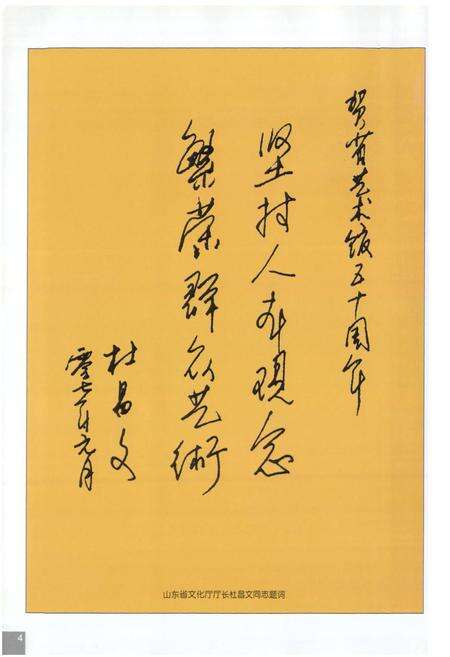 贺省艺术馆五十周年
坚持人本观念
繁荣群众艺术
杜昌文
零七年元月
山东省文化厅厅长杜昌文同志题词
4